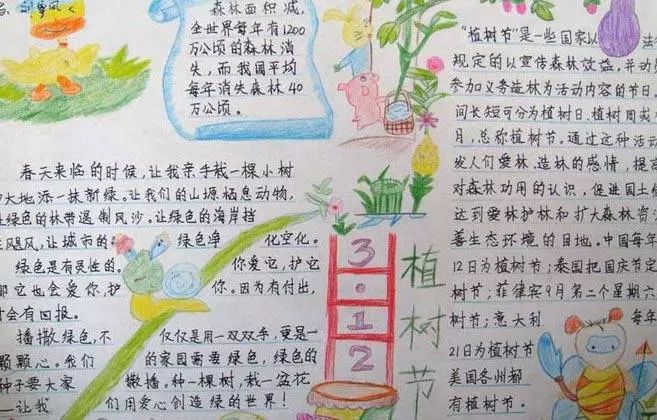 森林面积减,
全世界每年有1200
万公顷的森林消
失,而我国平均
每年消失森林40
万公顷。
春天来临的时候,让我亲手栽一棵小树
大地添一抹新绿。让我们的山塬栖息动物,
绿色的林带遏制风沙。让绿色的海岸挡
飓风,让城市的绿色净化空化。
绿色是有灵性的。你爱它,护它
它也会爱你,护你。因为有付出,
会有回报。
播撒绿色,不仅仅是用一双双手,更是一
颗颗心。我们的家园需要绿色,绿色的
种子要大家撒播。种一棵树,栽一盆花
让我们用爱心创造绿色的世界!
3·12
植树节
“植树节”是一些国家以法
规定的以宣传森林效益,并动员
参加义务造林为活动内容的节日。
间长短可分为植树日、植树周或
月,总称植树节。通过这种活动
发人们爱林、造林的感情,提高
对森林功用的认识,促进国土
达到爱林护林和扩大森林资
善生态环境的目地。中国每年
12日为植树节;泰国把国庆节定
树节;菲律宾9月第二个星期六
树节;意大利每年
21日为植树节
美国各州都
有植树节。